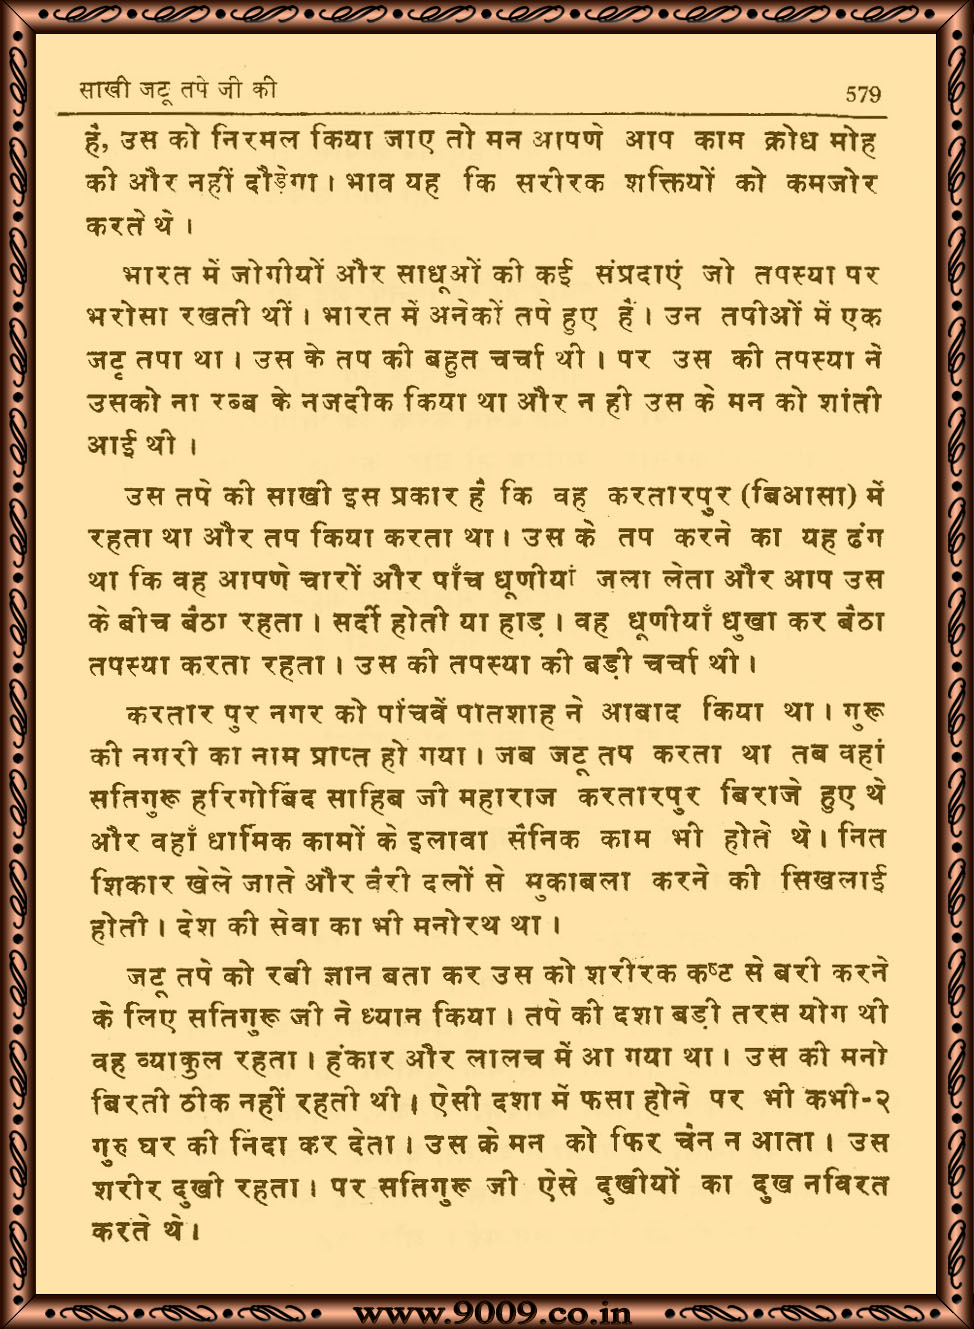 साखी जटू तपे जी की
579
है, उस को निरमल किया जाए तो मन आपणे आप काम क्रोध मोह
की और नहीं दौड़ेगा । भाव यह कि सरीरक शक्तियों को कमजोर
करते थे ।
भारत में जोगीयों और साधूओं की कई संप्रदाएं जो तपस्या पर
भरोसा रखती थीं । भारत में अनेकों तपे हुए हैं । उन तपीओं में एक
जटृ तपा था । उस के तप की बहुत चर्चा थी । पर उस की तपस्या ने
उसको ना रब्ब के नजदीक किया था और न ही उस के मन को शांती
आई थी ।
उस तपे की साखी इस प्रकार है कि वह करतारपुर (बिआसा) में
रहता था और तप किया करता था । उस के तप करने का यह ढंग
था कि वह आपणे चारों और पाँच धूणीयां जला लेता और आप उस
के बीच बैठा रहता । सर्दी होती या हाड़ । वह धूणीयाँ धुखा कर बैठा
तपस्या करता रहता । उस की तपस्या की बड़ी चर्चा थी ।
करतार पुर नगर को पांचवें पातशाह ने आबाद किया था । गुरू
की नगरी का नाम प्राप्त हो गया । जब जटू तप करता था तब वहां
सतिगुरू हरिगोबिंद साहिब जी महाराज करतारपुर बिराजे हुए थे
और वहाँ धार्मिक कामों के इलावा सैनिक काम भी होते थे । नित
शिकार खेले जाते और वैरी दलों से मुकाबला करने की सिखलाई
होती । देश की सेवा का भी मनोरथ था ।
जटू तपे को रबी ज्ञान बता कर उस को शरीरक कष्ट से बरी करने
के लिए सतिगुरू जी ने ध्यान किया । तपे की दशा बड़ी तरस योग थी
वह व्याकुल रहता । हंकार और लालच में आ गया था । उस की मनो
बिरती ठीक नहीं रहती थी । ऐसी दशा में फसा होने पर भी कभी-२
गुरु घर की निंदा कर देता । उस के मन को फिर चैन न आता । उस
शरीर दुखी रहता । पर सतिगुरू जी ऐसे दुखीयों का दुख नविरत
करते थे ।
www.9009.co.in